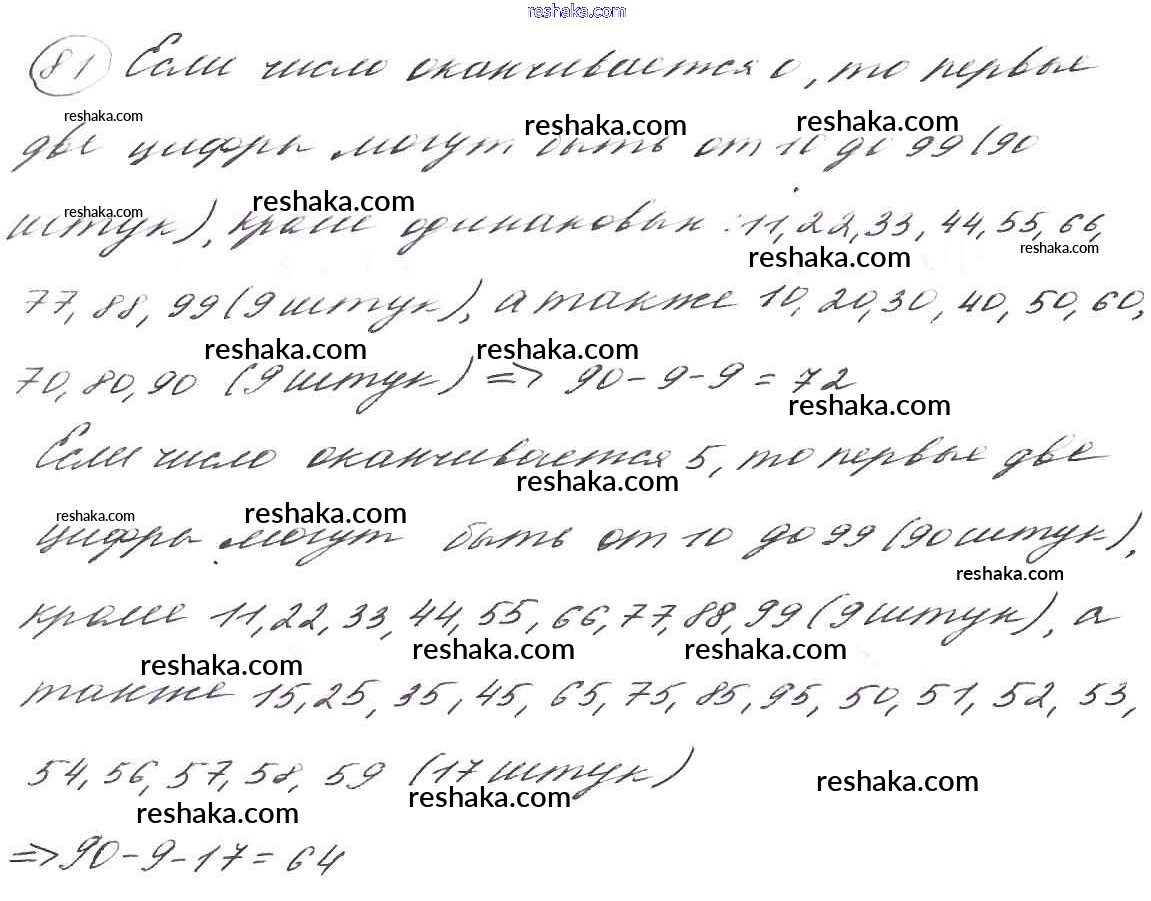 reshaka.com
81 Если число оканчивается 0, то первые
reshaka.com reshaka.com reshaka.com
две цифры могут быть от 10 до 99 (90
reshaka.com reshaka.com
штук), кроме одинаковых: 11, 22, 33, 44, 55, 66,
reshaka.com reshaka.com
77, 88, 99 (9 штук), а также 10, 20, 30, 40, 50, 60,
reshaka.com reshaka.com
70, 80, 90 (9 штук) => 90-9-9=72
reshaka.com
Если число оканчивается 5, то первые две
reshaka.com reshaka.com reshaka.com
цифры могут быть от 10 до 99 (90 штук),
reshaka.com
кроме 11, 22, 33, 44, 55, 66, 77, 88, 99 (9 штук), а
reshaka.com reshaka.com reshaka.com
также 15, 25, 35, 45, 65, 75, 85, 95, 50, 51, 52, 53,
54, 56, 57, 58, 59 (17 штук)
reshaka.com reshaka.com reshaka.com
=> 90-9-17=64